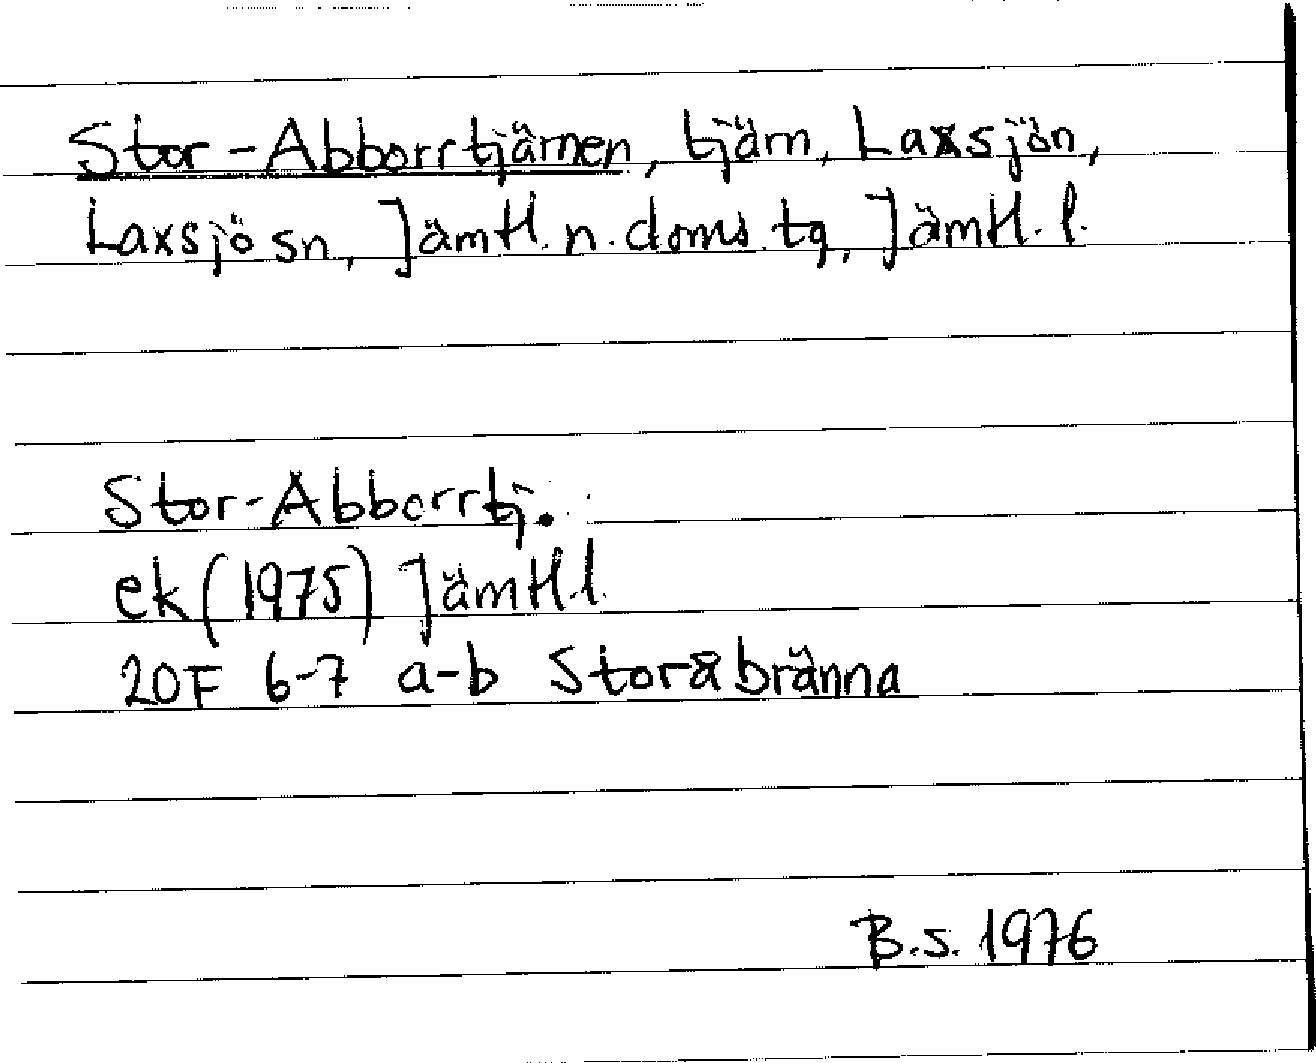 Stor-Abborrtjärnen, tjärn, Laxsjön,
Laxsjö sn, Jämtl. n. doms. tg, Jämtl. l.
Stor-Abborrtj.
ek (1975) Jämtl.l.
20F 6-7 a-b Storåbränna
B.S. 1976